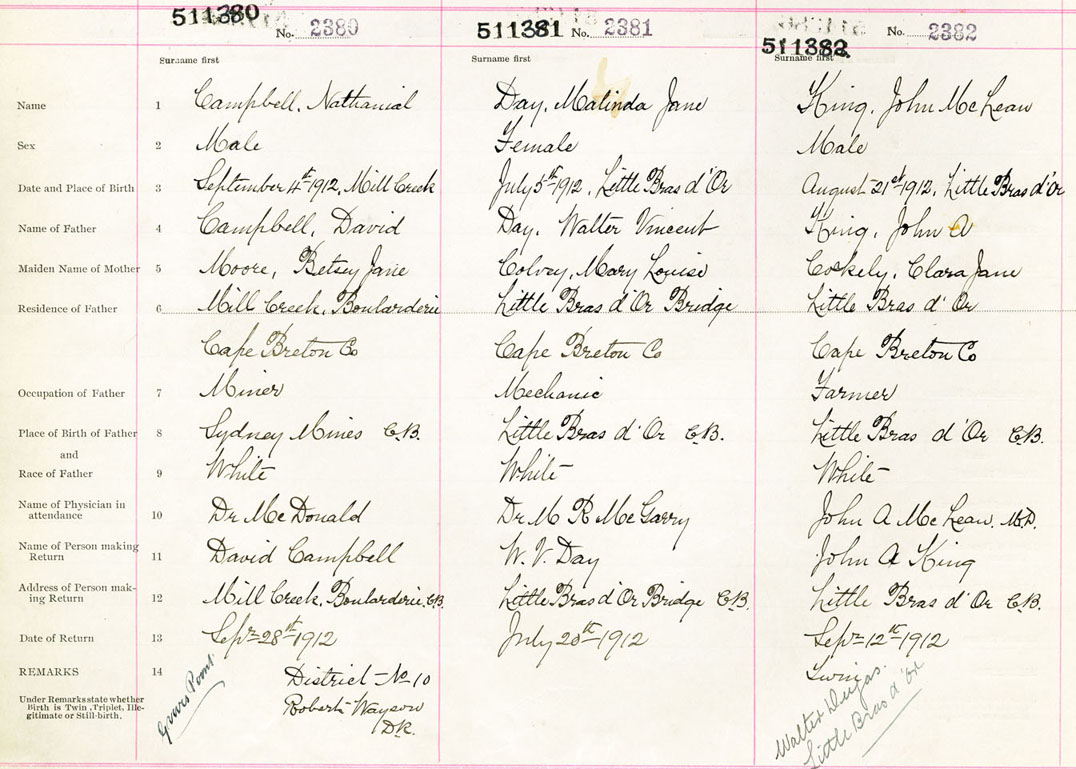 511380 No. 2380 511381 No. 2381 511382 No. 2382
Surname first Surname first Surname first
Name 1 Campbell, Nathanial Day, Malinda Jane King, John McLean
Sex 2 Male Female Male
Date and Place of Birth 3 September 4th 1912, Mill Creek July 5th 1912, Little Bras d'Or August 21st 1912, Little Bras d'Or
Name of Father 4 Campbell, David Day, Walter Vincent King, John A
Maiden Name of Mother 5 Moore, Betsey Jane Colvey, Mary Louise Coskely, Clara Jane
Residence of Father 6 Mill Creek, Boularderie Little Bras d'Or Bridge Little Bras d'Or
Cape Breton Co Cape Breton Co Cape Breton Co
Occupation of Father 7 Miner Mechanic Farmer
Place of Birth of Father 8 Sydney Mines C.B. Little Bras d'Or C.B. Little Bras d'Or C.B.
and
Race of Father 9 White White White
Name of Physician in
attendance 10 Dr McDonald Dr M R McGarry John A McLean, M.D.
Name of Person making
Return 11 David Campbell W. V. Day John A King
Address of Person mak-
ing Return 12 Mill Creek, Boularderie, C.B. Little Bras d'Or Bridge C.B. Little Bras d'Or C.B.
Date of Return 13 Sept 28th 1912 July 20th 1912 Sept 12th 1912
REMARKS 14 District No 10
Under Remarks state whether
Birth is Twin, Triplet, Ille-
gitimate or Still-birth.
Robert Wayson
D.R.
Point
Walter
Little Bras d'Or